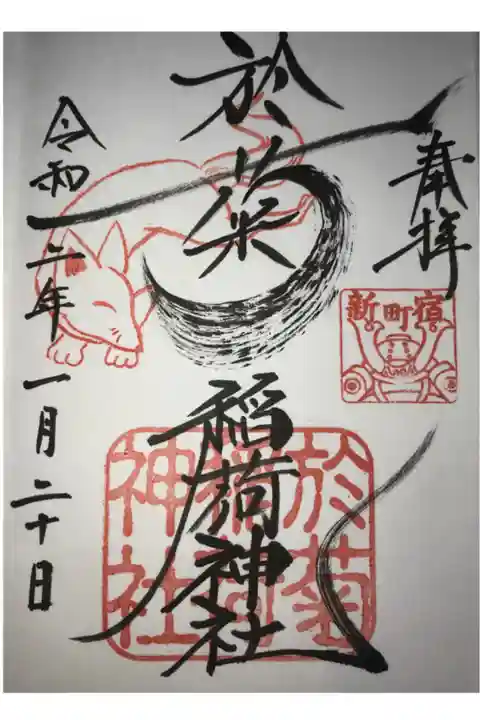 奉拝
新町宿
於菊
稲荷神社
於菊
稲荷
神社
令和二年一月二十日